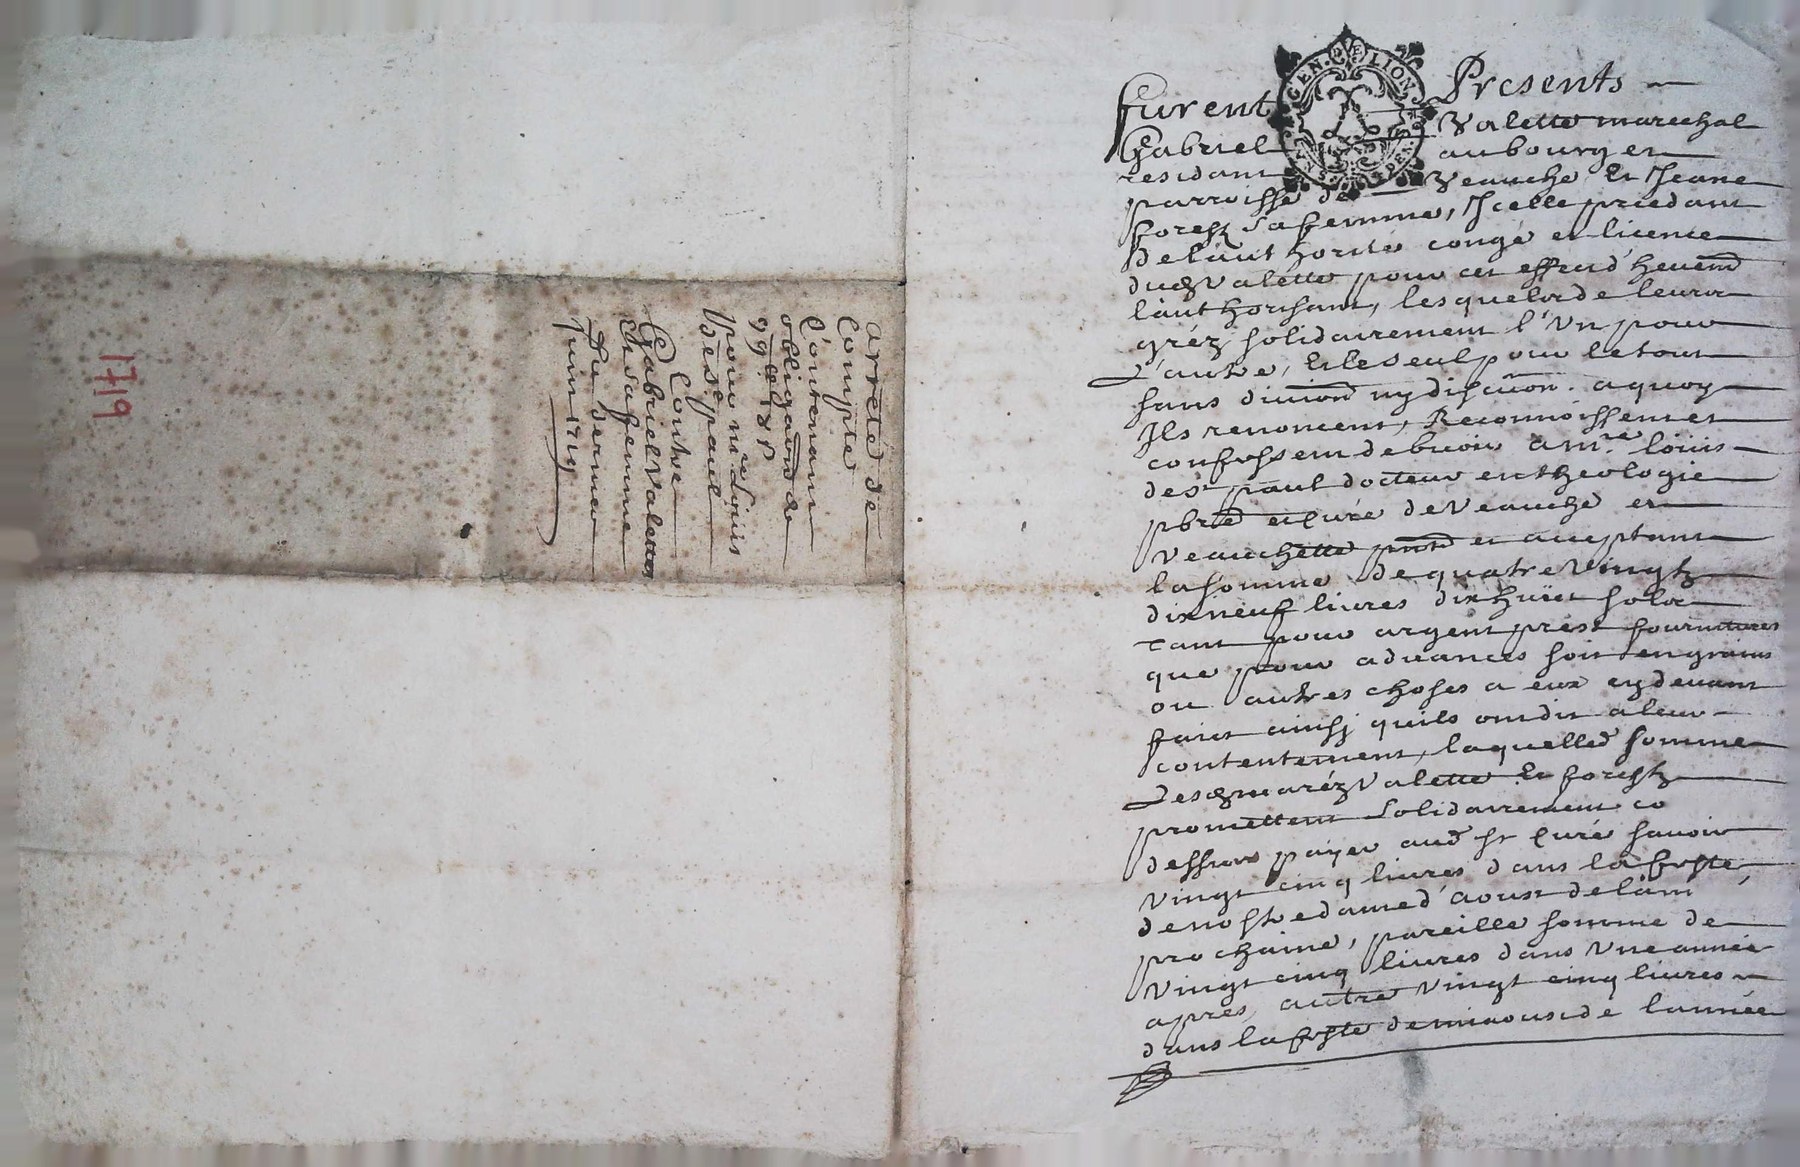 arreté de
Compte
Contenant
obligaõn de
99ᵗᵗ 18ˢ
pour mʳᵉ Loüis
de Sᵗ paul
Contre
Gabriel Valette
Et sa femme
Du dernier
Juin 1719
1719
GEN. DE LION
furent Presents
Gabriel Valette marechal
residant au bourg et
parroisse de Veauche Et Jeane
forest sa femme, Jcelle procedant
de láuthorité congé et licence
dud Valette pour cet effect d'heuem̃t
láuthorisant, lesquels de leurs
gréz solidairement l'Vn pour
L'autre, Et le seul pour le tout
sans diuision ny discũon. a quoy
Jls renoncent, Reconnoissent et
confessent debuoir a mʳᵉ. loüis
de sᵗ paul docteur en theologie
pbrẽ et Curé de Veauche et
Veauchette pñt et acceptant
la somme de quatre Vingtz
dix neuf liures dix huict solz
Tant pour argent prest fournitures
que pour aduances soit en grains
ou autres choses a eux cy deuant
fait ainsj quils ont dit a leur
contentement, laquelle somme
Lesd mariéz Valette Et forestz
promettent solidairement co
dessus payer aud sʳ Curé sauoir
Vingt cinq liures dans la feste
de nostre dame d'aoust de lán
prochaine, pareille somme de
Vingt cinq liures dans Vne année
apres, autre Vingt cinq liures
dans la feste de mi aoust de lannée